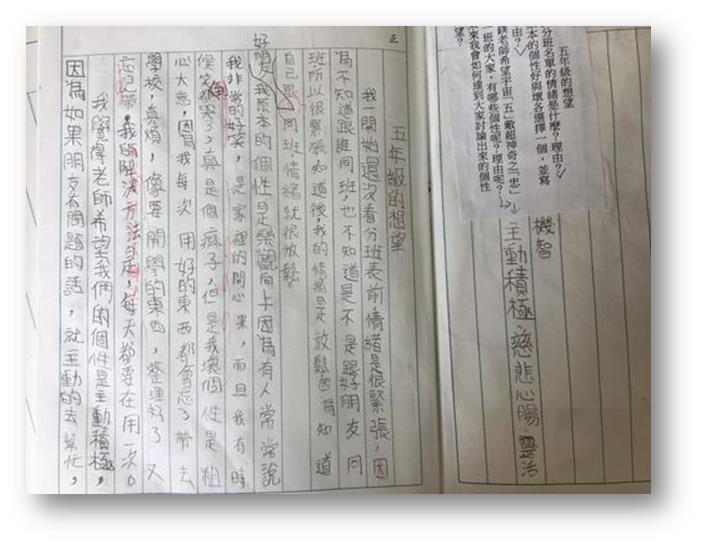 五年級的想望
分班名單的情緒是什麼?理由?
本的個性好與壞各選擇一個,並寫
由?
鎂老師希望宇宙「五」敵超神奇之「忠」
一班的大家,有哪些個性呢?理由呢?
來我會如何達到大家討論出來的個性
望?
機智
主動積極,慈悲心腸,靈活
正
五年級的想望
我一開始還沒看分班表前情緒是很緊張,因
為不知道跟誰同班,也不知道是不是跟好朋友同
班所以很緊張知道後,我的情緒是放鬆因為知道
自己跟 同班,情緒就很放鬆
好朋友
我原本的個性是樂觀向上因為有人常常說
我非常的好笑,是家裡的開心果,而且我有時
候笑 了,真是個瘋子,但是我壞個性是粗
心大意,因為我每次用好的東西都會忘了帶去
學校,真煩,像要開學的東西,整理好了又
忘記帶,我的解決方法 ,每天都要在用一次。
我覺得老師希望我們的個性是主動積極,
因為如果朋友有問題的話,就主動的去幫忙,